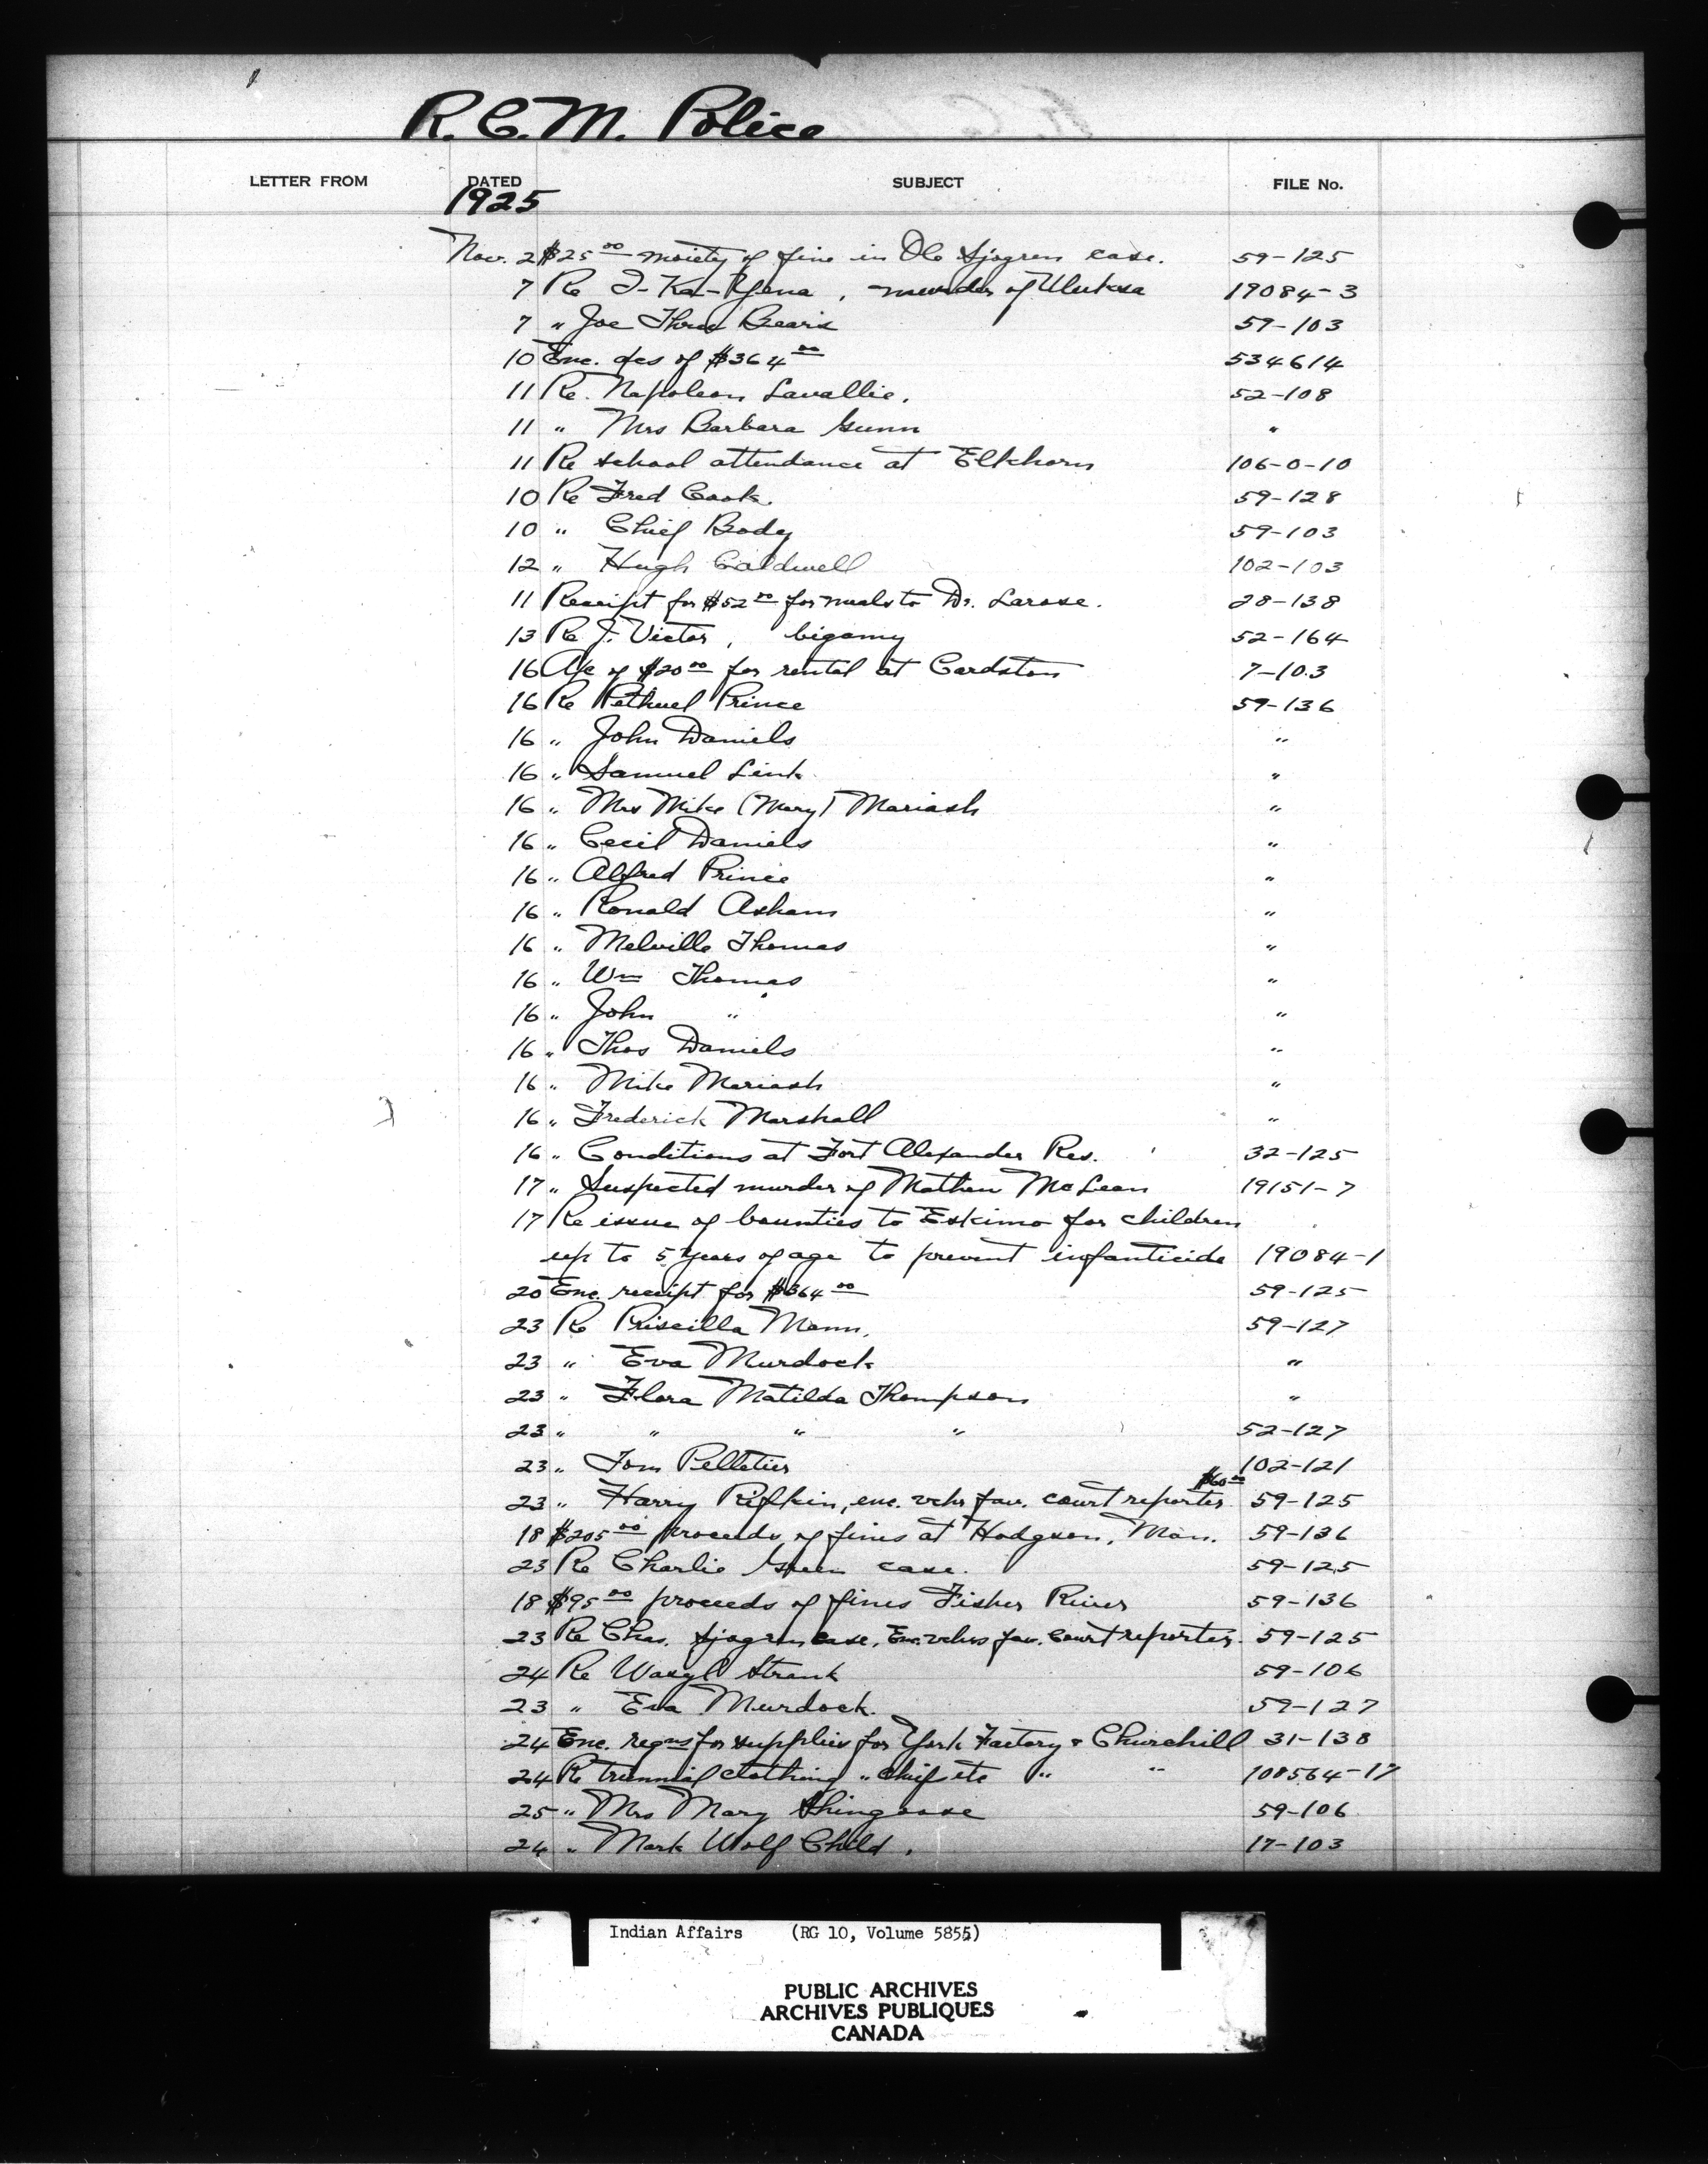 R. C. M. Police
LETTER FROM DATED SUBJECT FILE No.
1925
Nov. 2 $25 00 moiety of fine in Ole Sjogren case. 59-125
7 Re I-Ka-Yena, murder of Uluksa 19084-3
7 " Joe Three Bears 59-103
10 Enc. of $364 00 534614
11 Re. Napoleon Lavallie. 52-108
11 " Mrs Barbara Gunn "
11 Re school attendance at Elkhorn 106-0-10
10 Re Fred Cook. 59-128
10 " Chief Body 59-103
12 " Hugh Caldwell 102-103
11 Receipt for $52 00 for meals to Dr. Larose. 28-138
13 Re J. Victor, bigamy 52-164
16 A/c of $20 00 for rental at Cardston 7-103
16 Re Pethuel Prince 59-136
16 " John Daniels "
16 " Samuel Sink "
16 " Mrs Mike (Mary) Mariash "
16 " Cecil Daniels "
16 " Alfred Prince "
16 " Ronald Asham "
16 " Melville Thomas "
16 " Wm Thomas "
16 " John " "
16 " Thos Daniels "
16 " Mike Mariash "
16 " Frederick Marshall "
16 " Conditions at Fort Alexander Res. 32-125
17 " Suspected murder of Mathew McLean 19151-7
17 Re issue of bounties to Eskimo for children
up to 5 years of age to prevent infanticide 19084-1
20 Enc. receipt for $364 00 59-125
23 Re Priscilla Mann, 59-127
23 " Eva Murdock "
23 " Flora Matilda Thompson "
23 " " " " 52-127
23 " Tom Pelletier 102-121
$60 00
23 " Harry Rifkin, enc. vchr fav. court reporter 59-125
18 $205 00 proceeds of fines at Hodgson, Man. 59-136
23 Re Charlie Green case. 59-125
18 $95 00 proceeds of fines Fisher River 59-136
23 Re Chas. Sjogren case, Enc. vchrs fav. Court reporter. 59-125
24 Re Wasyl Strank 59-106
23 " Eva Murdock. 59-127
24 Enc. reqns for supplies for York Factory & Churchill 31-138
24 Re triennial clothing " chiefs etc " " 108564-17
25 " Mrs Mary Shingoose 59-106
24 " Mark Wolf Child. 17-103
Indian Affairs (RG 10, Volume 5855)
PUBLIC ARCHIVES
ARCHIVES PUBLIQUES
CANADA